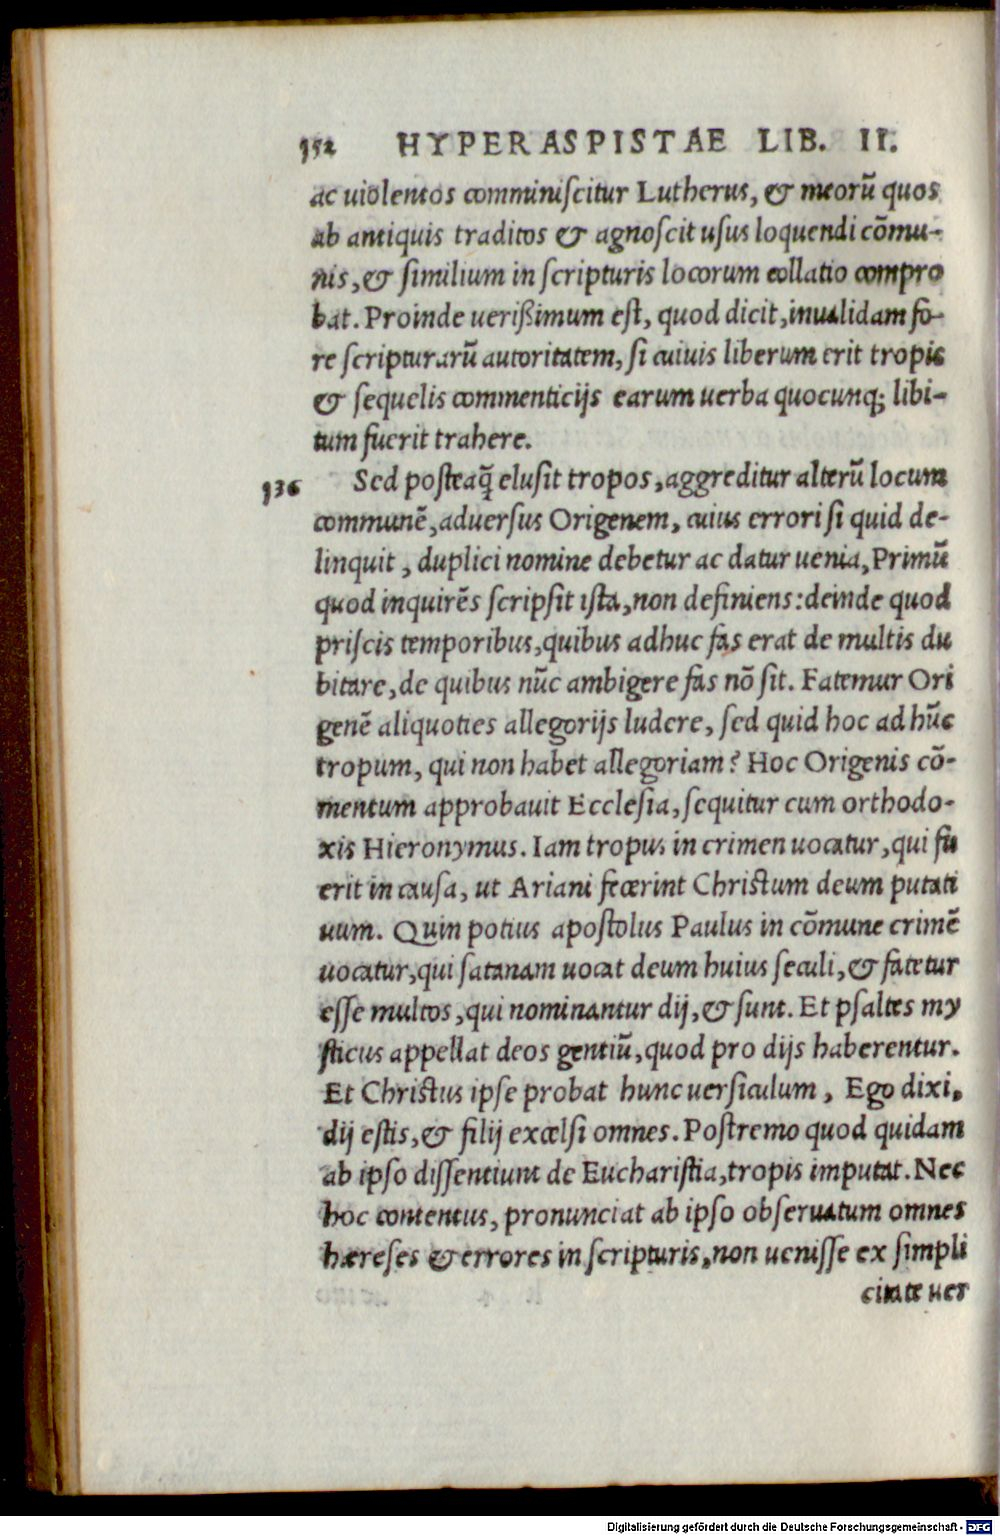 152 HYPERASPISTAE LIB. II.
ac uiolentos comminiscitur Lutherus, & meorũ quos
ab antiquis traditos & agnoscit usus loquendi cõmu-
nis, & similium in scripturis locorum collatio compro
bat. Proinde uerißimum est, quod dicit, inualidam fo-
re scripturarũ autoritatem, si cuiuis liberum erit tropis
& sequelis commenticijs earum uerba quocunq; libi-
tum fuerit trahere.
136 Sed posteaq̃ elusit tropos, aggreditur alterũ locum
communẽ, aduersus Origenem, cuius errori si quid de-
linquit, duplici nomine debetur ac datur uenia, Primũ
quod inquirẽs scripsit ista, non definiens: deinde quod
priscis temporibus, quibus adhuc fas erat de multis du
bitare, de quibus nũc ambigere fas nõ sit. Fatemur Ori
genẽ aliquoties allegorijs ludere, sed quid hoc ad hũc
tropum, qui non habet allegoriam? Hoc Origenis cõ-
mentum approbauit Ecclesia, sequitur cum orthodo-
xis Hieronymus. Iam tropus in crimen uocatur, qui fu
erit in causa, ut Ariani fecerint Christum deum putati
uum. Quin potius apostolus Paulus in cõmune crimẽ
uocatur, qui satanam uocat deum huius seculi, & fatetur
esse multos, qui nominantur dij, & sunt. Et psaltes my
sticus appellat deos gentiũ, quod pro dijs haberentur.
Et Christus ipse probat hunc uersiculum, Ego dixi,
dij estis, & filij excelsi omnes. Postremo quod quidam
ab ipso dissentiunt de Eucharistia, tropis imputat. Nec
hoc contentus, pronunciat ab ipso obseruatum omnes
hæreses & errores in scripturis, non uenisse ex simpli
citate uer
Digitalisierung gefördert durch die Deutsche Forschungsgemeinschaft - DFG